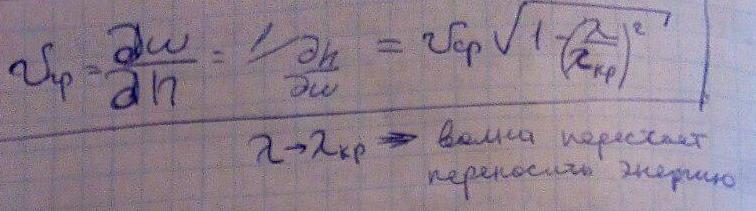 v_гр = ∂ω/∂h = 1/(∂h/∂ω) = v_ср √(1 - (λ/λ_кр)²)
λ→λ_кр ⇒ волна перестает
переносить энергию